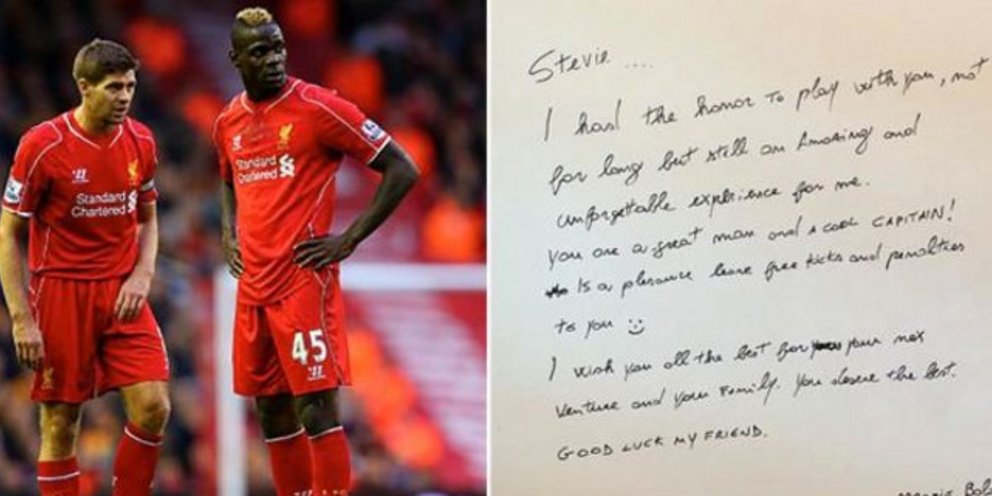 Standard
Chartered
Standard
Chartered
45
Stevie ....
I had the honor to play with you, not
for long but still an Amazing and
unforgettable experience for me.
you are a great man and a cool CAPITAIN!
Is a pleasure leave free kicks and penalties
to you
I wish you all the best for your nex
venture and your Family. You deserve the best.
GOOD LUCK MY FRIEND.
Mario Bal